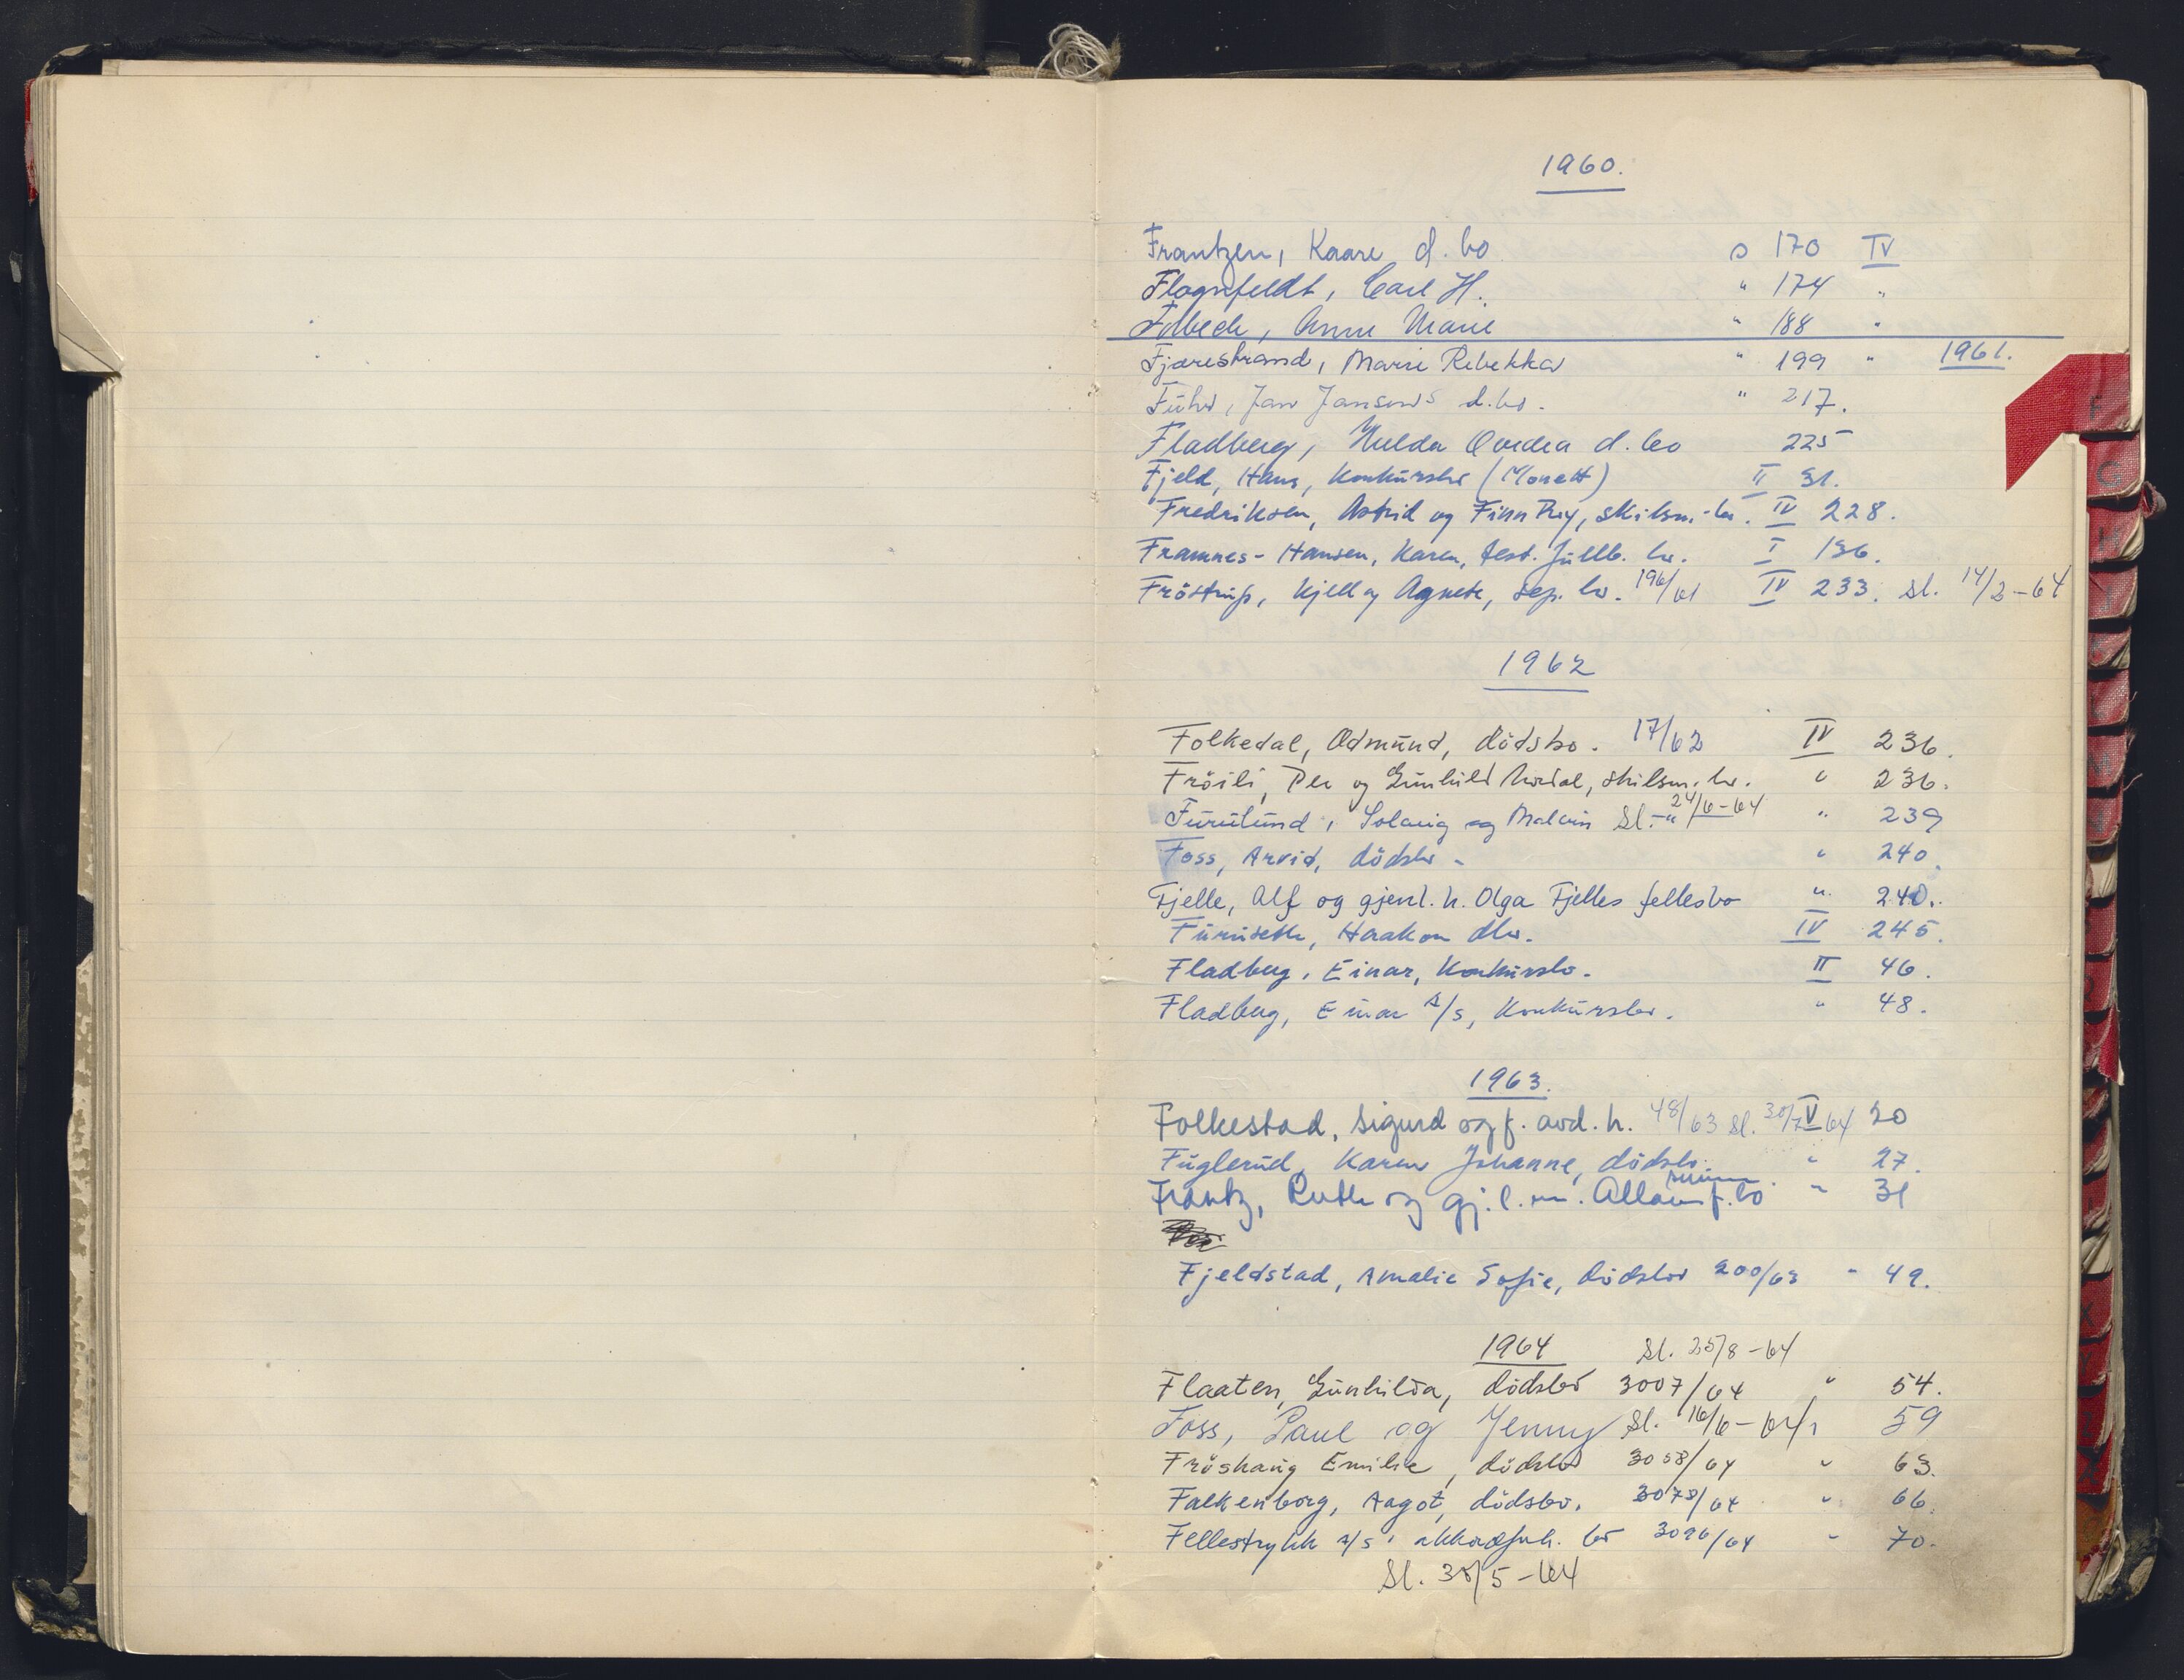 1960.
Frantzen, Kaare d. bo s 170 IV
Flognfeldt, Carl H. " 174 "
Falbeck, Anne Marie " 188 "
Fjærestrand, Marie Rebekka " 199 " 1961.
Führ, Jan Jansens d.bo. " 217.
Fladberg, Hulda Ovedia d. bo 225
Fjeld, Hans, Konkursbo (Monett) II 31.
Fredriksen, Astrid og Finn Roy, skilsm.-bo. IV 228.
Framnes-Hansen, Karen, test. fullb. bo. I 136.
Fröstrup, Kjell og Agnete, sep. bo. 196/61 IV 233. sl. 14/2-64
1962
Folkedal, Odmund, dödsbo. 17/62 IV 236.
Fröili, Per og Gunhild Nordal, skilsm. bo. " 236.
Furulund, Solveig og Malvin Sl. 24/6-64 " 239
Foss, Arvid, dödsbo - " 240.
Fjelle, Alf og gjenl. h. Olga Fjelles fellesbo " 240.
Furuseth, Haakon dbo. IV 245.
Fladberg, Einar, Konkursbo. II 46.
Fladberg, Einar A/S, Konkursbo. " 48.
1963.
Folkestad, Sigurd og f. avd. h. 48/63 sl. 30/7 64 V 20
Fuglerud, Karen Johanne, dödsbo. " 27.
Frantz, Ruth og gj. l. m. Allan f. bo " 31
Fjeldstad, Amalie Sofie, dödsbo 200/63 " 49.
1964 Sl. 25/8-64
Flaaten, Gunhilda, dödsbo 3007/64 " 54.
Foss, Paul og Jenny Sl. 16/6-64 " 59
Fröshaug Emilie, dödsbo 3058/64 " 63.
Falkenborg, Aagot, dödsbo. 3078/64 " 66.
Fellestrykk A/S, akkordforh. bo 3096/64 " 70.
Sl. 38/5-64